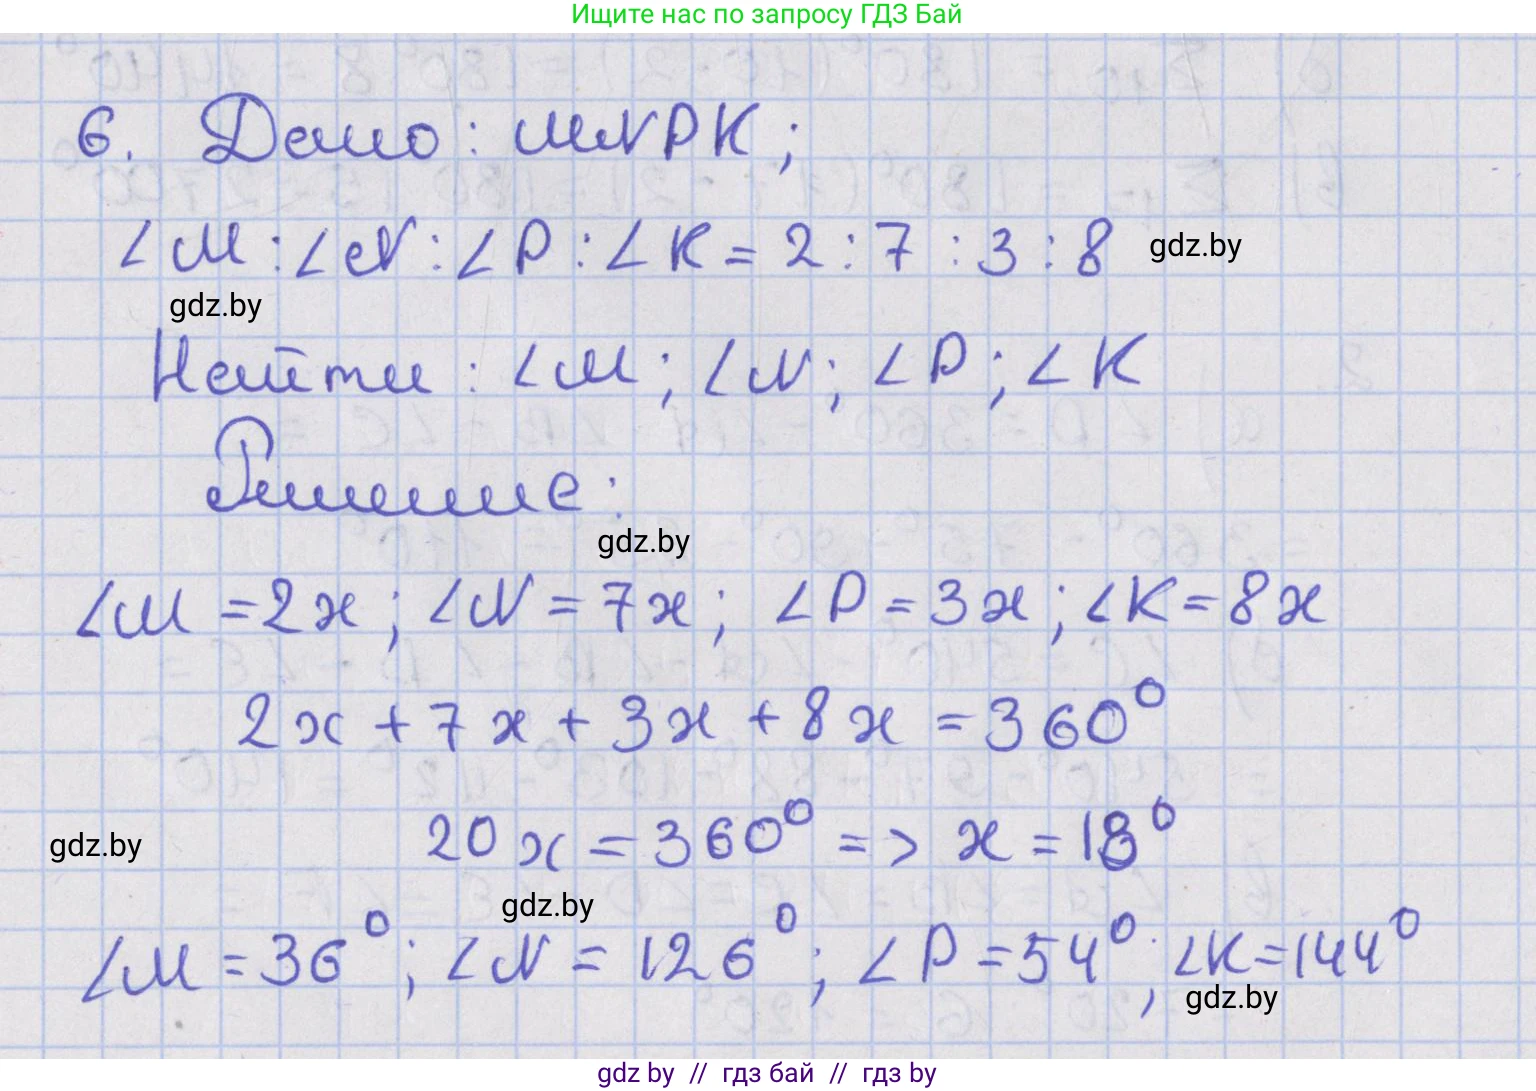 Ищите нас по запросу ГДЗ Бай
6. Дано: MNPK;
∠M : ∠N : ∠P : ∠K = 2 : 7 : 3 : 8
gdz.by
gdz.by
Найти: ∠M; ∠N; ∠P; ∠K
Решение:
gdz.by
∠M = 2x; ∠N = 7x; ∠P = 3x; ∠K = 8x
2x + 7x + 3x + 8x = 360°
20x = 360° => x = 18°
gdz.by
gdz.by
∠M = 36°; ∠N = 126°; ∠P = 54°; ∠K = 144°
gdz.by
gdz by // гдз бай // гдз by